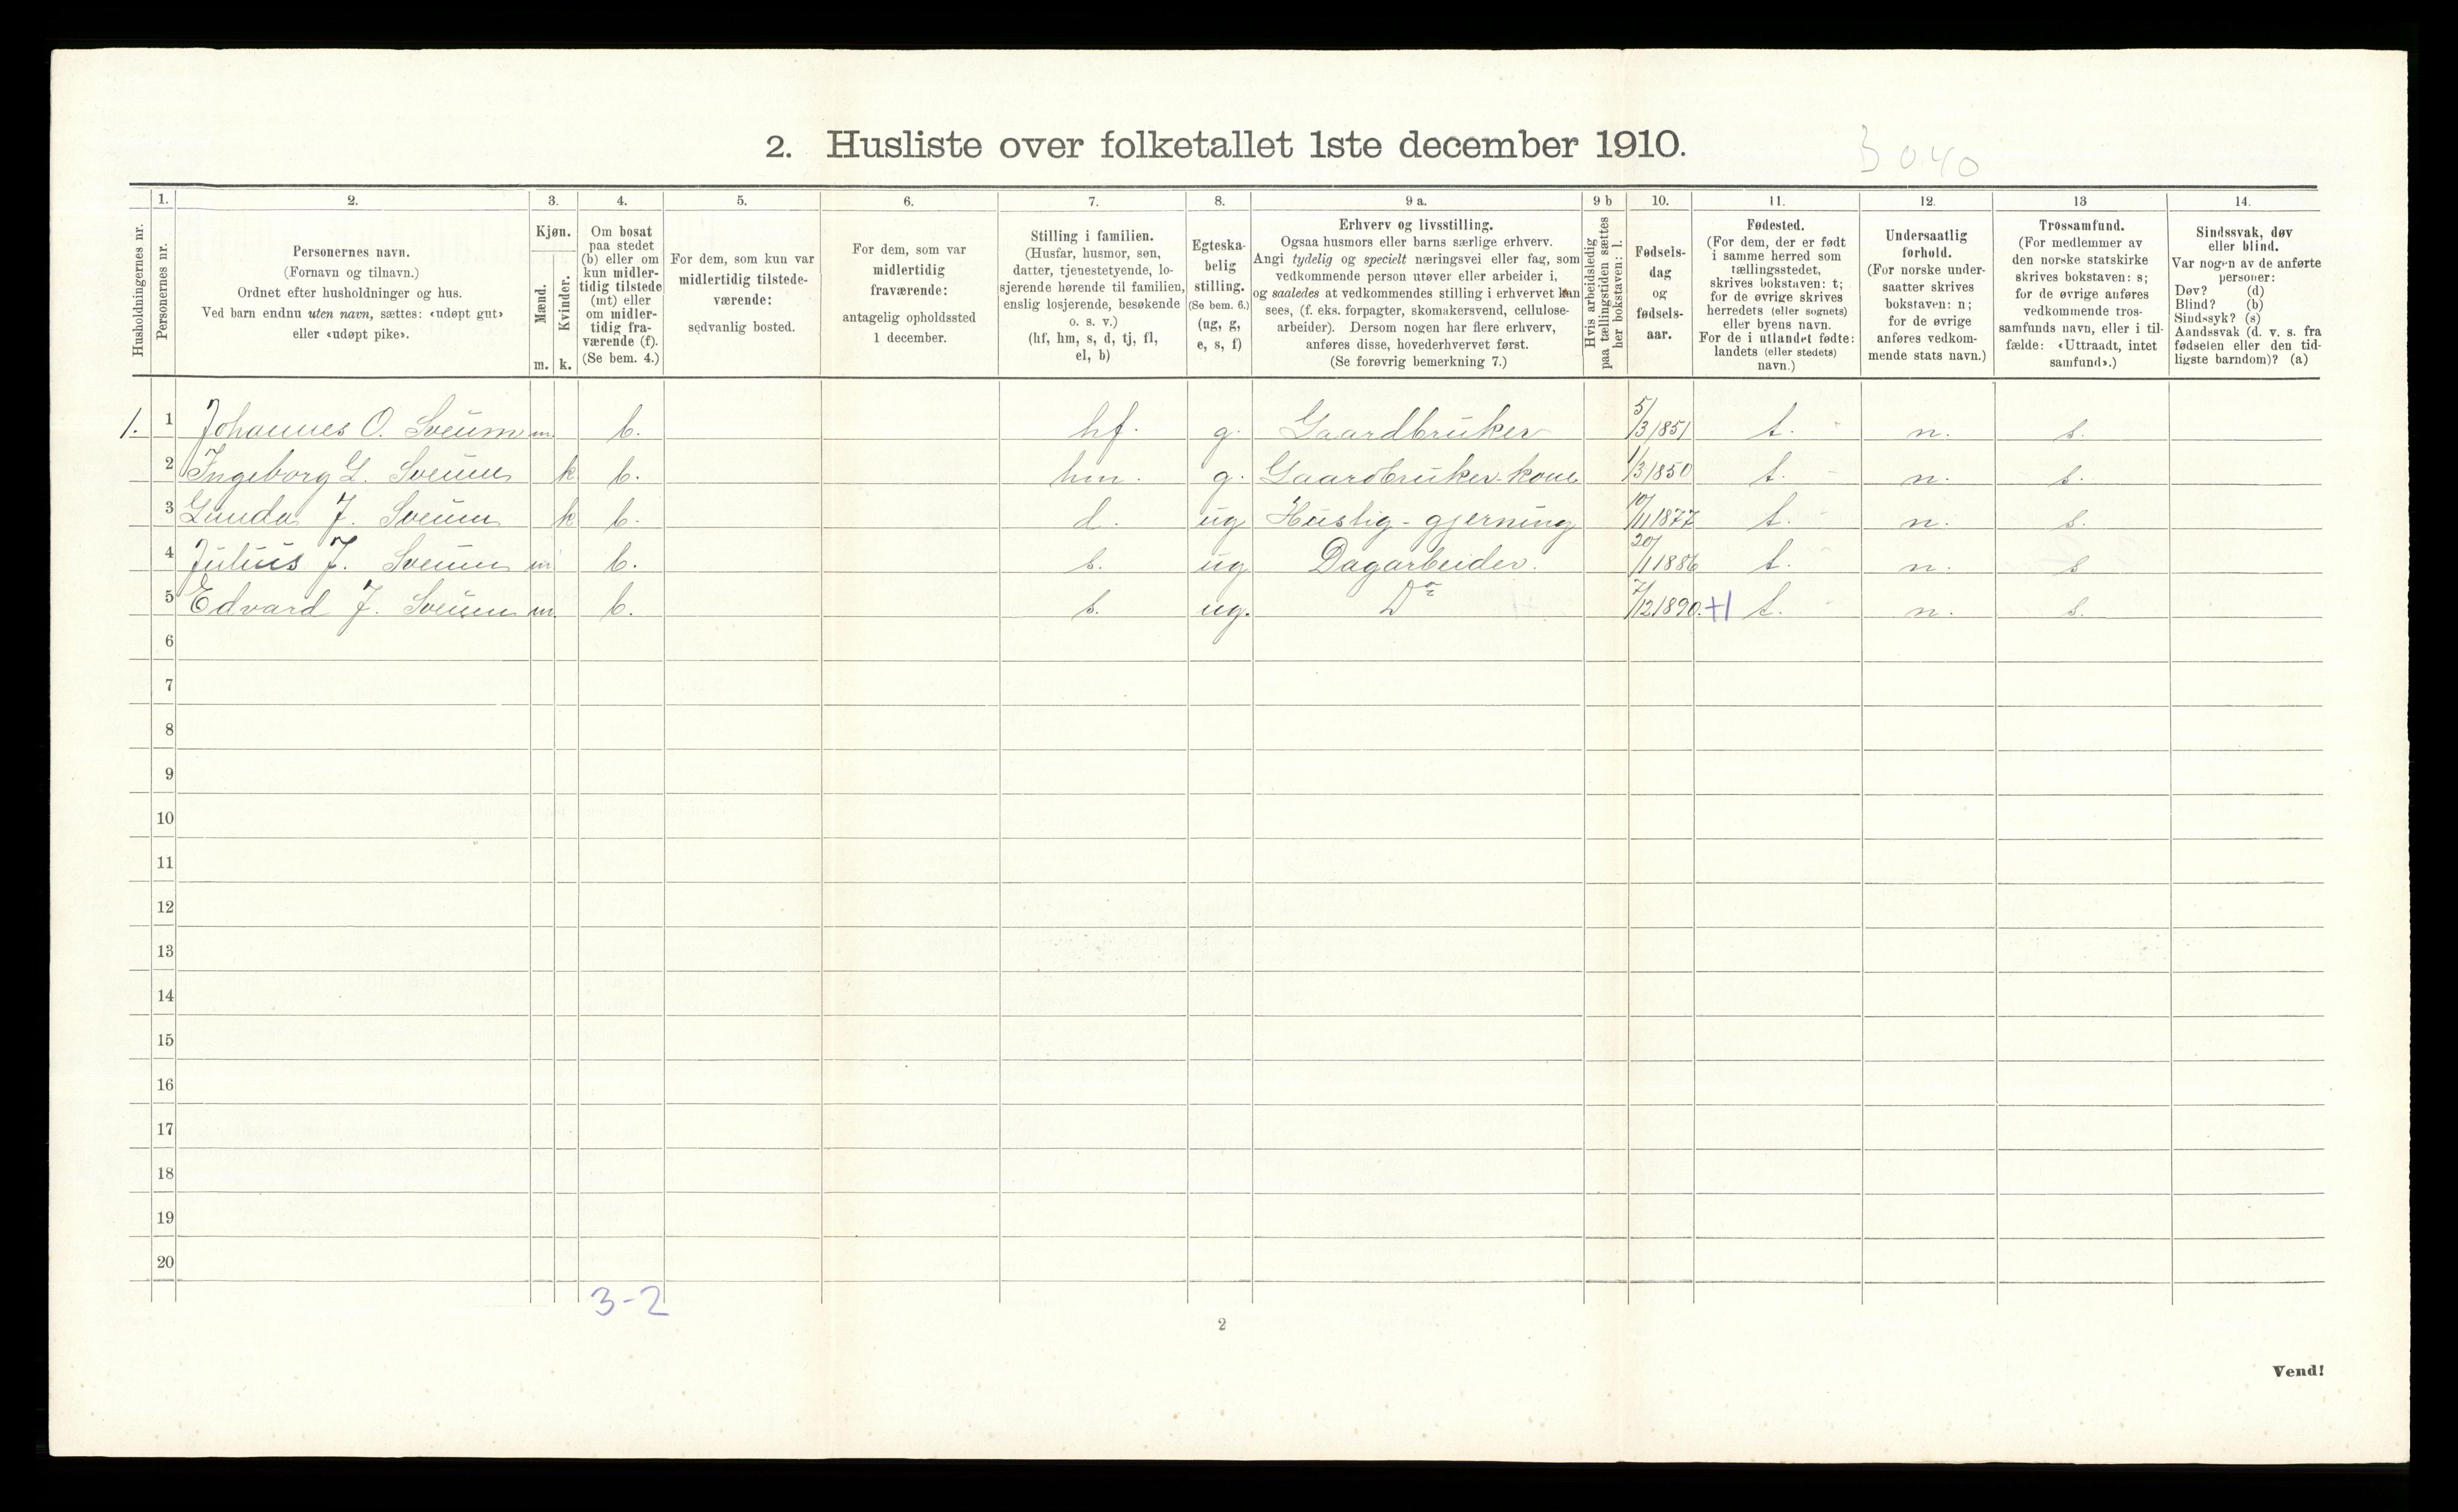 2. Husliste over folketallet 1ste december 1910.
3040
1. 2. 3. 4. 5. 6. 7. 8. 9 a. 9 b 10. 11. 12. 13 14.
Husholdningernes nr.
Personernes nr.
Personernes navn.
(Fornavn og tilnavn.)
Ordnet efter husholdninger og hus.
Ved barn endnu uten navn, sættes: «udøpt gut»
eller «udøpt pike».
Kjøn.
Mænd.
Kvinder.
m. k.
Om bosat
paa stedet
(b) eller om
kun midler-
tidig tilstede
(mt) eller
om midler-
tidig fra-
værende (f).
(Se bem. 4.)
For dem, som kun var
midlertidig tilstede-
værende:
sedvanlig bosted.
For dem, som var
midlertidig
fraværende:
antagelig opholdssted
1 december.
Stilling i familien.
(Husfar, husmor, søn,
datter, tjenestetyende, lo-
sjerende hørende til familien,
enslig losjerende, besøkende
o. s. v.)
(hf, hm, s, d, tj, fl,
el, b)
Egteska-
belig
stilling.
(Se bem. 6.)
(ug, g,
e, s, f)
Erhverv og livsstilling.
Ogsaa husmors eller barns særlige erhverv.
Angi tydelig og specielt næringsvei eller fag, som
vedkommende person utøver eller arbeider i,
og saaledes at vedkommendes stilling i erhvervet kan
sees, (f. eks. forpagter, skomakersvend, cellulose-
arbeider). Dersom nogen har flere erhverv,
anføres disse, hovederhvervet først.
(Se forøvrig bemerkning 7.)
Hvis arbeidsledig
paa tællingstiden sættes
her bokstaven: l.
Fødsels-
dag
og
fødsels-
aar.
Fødested.
(For dem, der er født
i samme herred som
tællingsstedet,
skrives bokstaven: t;
for de øvrige skrives
herredets (eller sognets)
eller byens navn.
For de i utlandet fødte:
landets (eller stedets)
navn.)
Undersaatlig
forhold.
(For norske under-
saatter skrives
bokstaven: n;
for de øvrige
anføres vedkom-
mende stats navn.)
Trossamfund.
(For medlemmer av
den norske statskirke
skrives bokstaven: s;
for de øvrige anføres
vedkommende tros-
samfunds navn, eller i til-
fælde: «Uttraadt, intet
samfund».)
Sindssvak, døv
eller blind.
Var nogen av de anførte
personer:
Døv? (d)
Blind? (b)
Sindssyk? (s)
Aandssvak (d. v. s. fra
fødselen eller den tid-
ligste barndom)? (a)
1. 1 Johannes O. Sveum m. b. hf. g. Gaardbruker 5/3 1851 t. n. s.
2 Ingeborg G. Sveum k b. hm. g. Gaardbruker-kone 1/3 1850 t. n. s.
3 Gunda J. Sveum k b. d. ug Huslig-gjerning 10/11 1877 t. n. s.
4 Julius J. Sveum m b. s. ug Dagarbeider. 20/1 1886 t. n. s
5 Edvard J. Sveum m. b. s. ug. Do 7/12 1890. +1 t. n. s.
6
7
8
9
10
11
12
13
14
15
16
17
18
19
20
3-2
2
Vend!